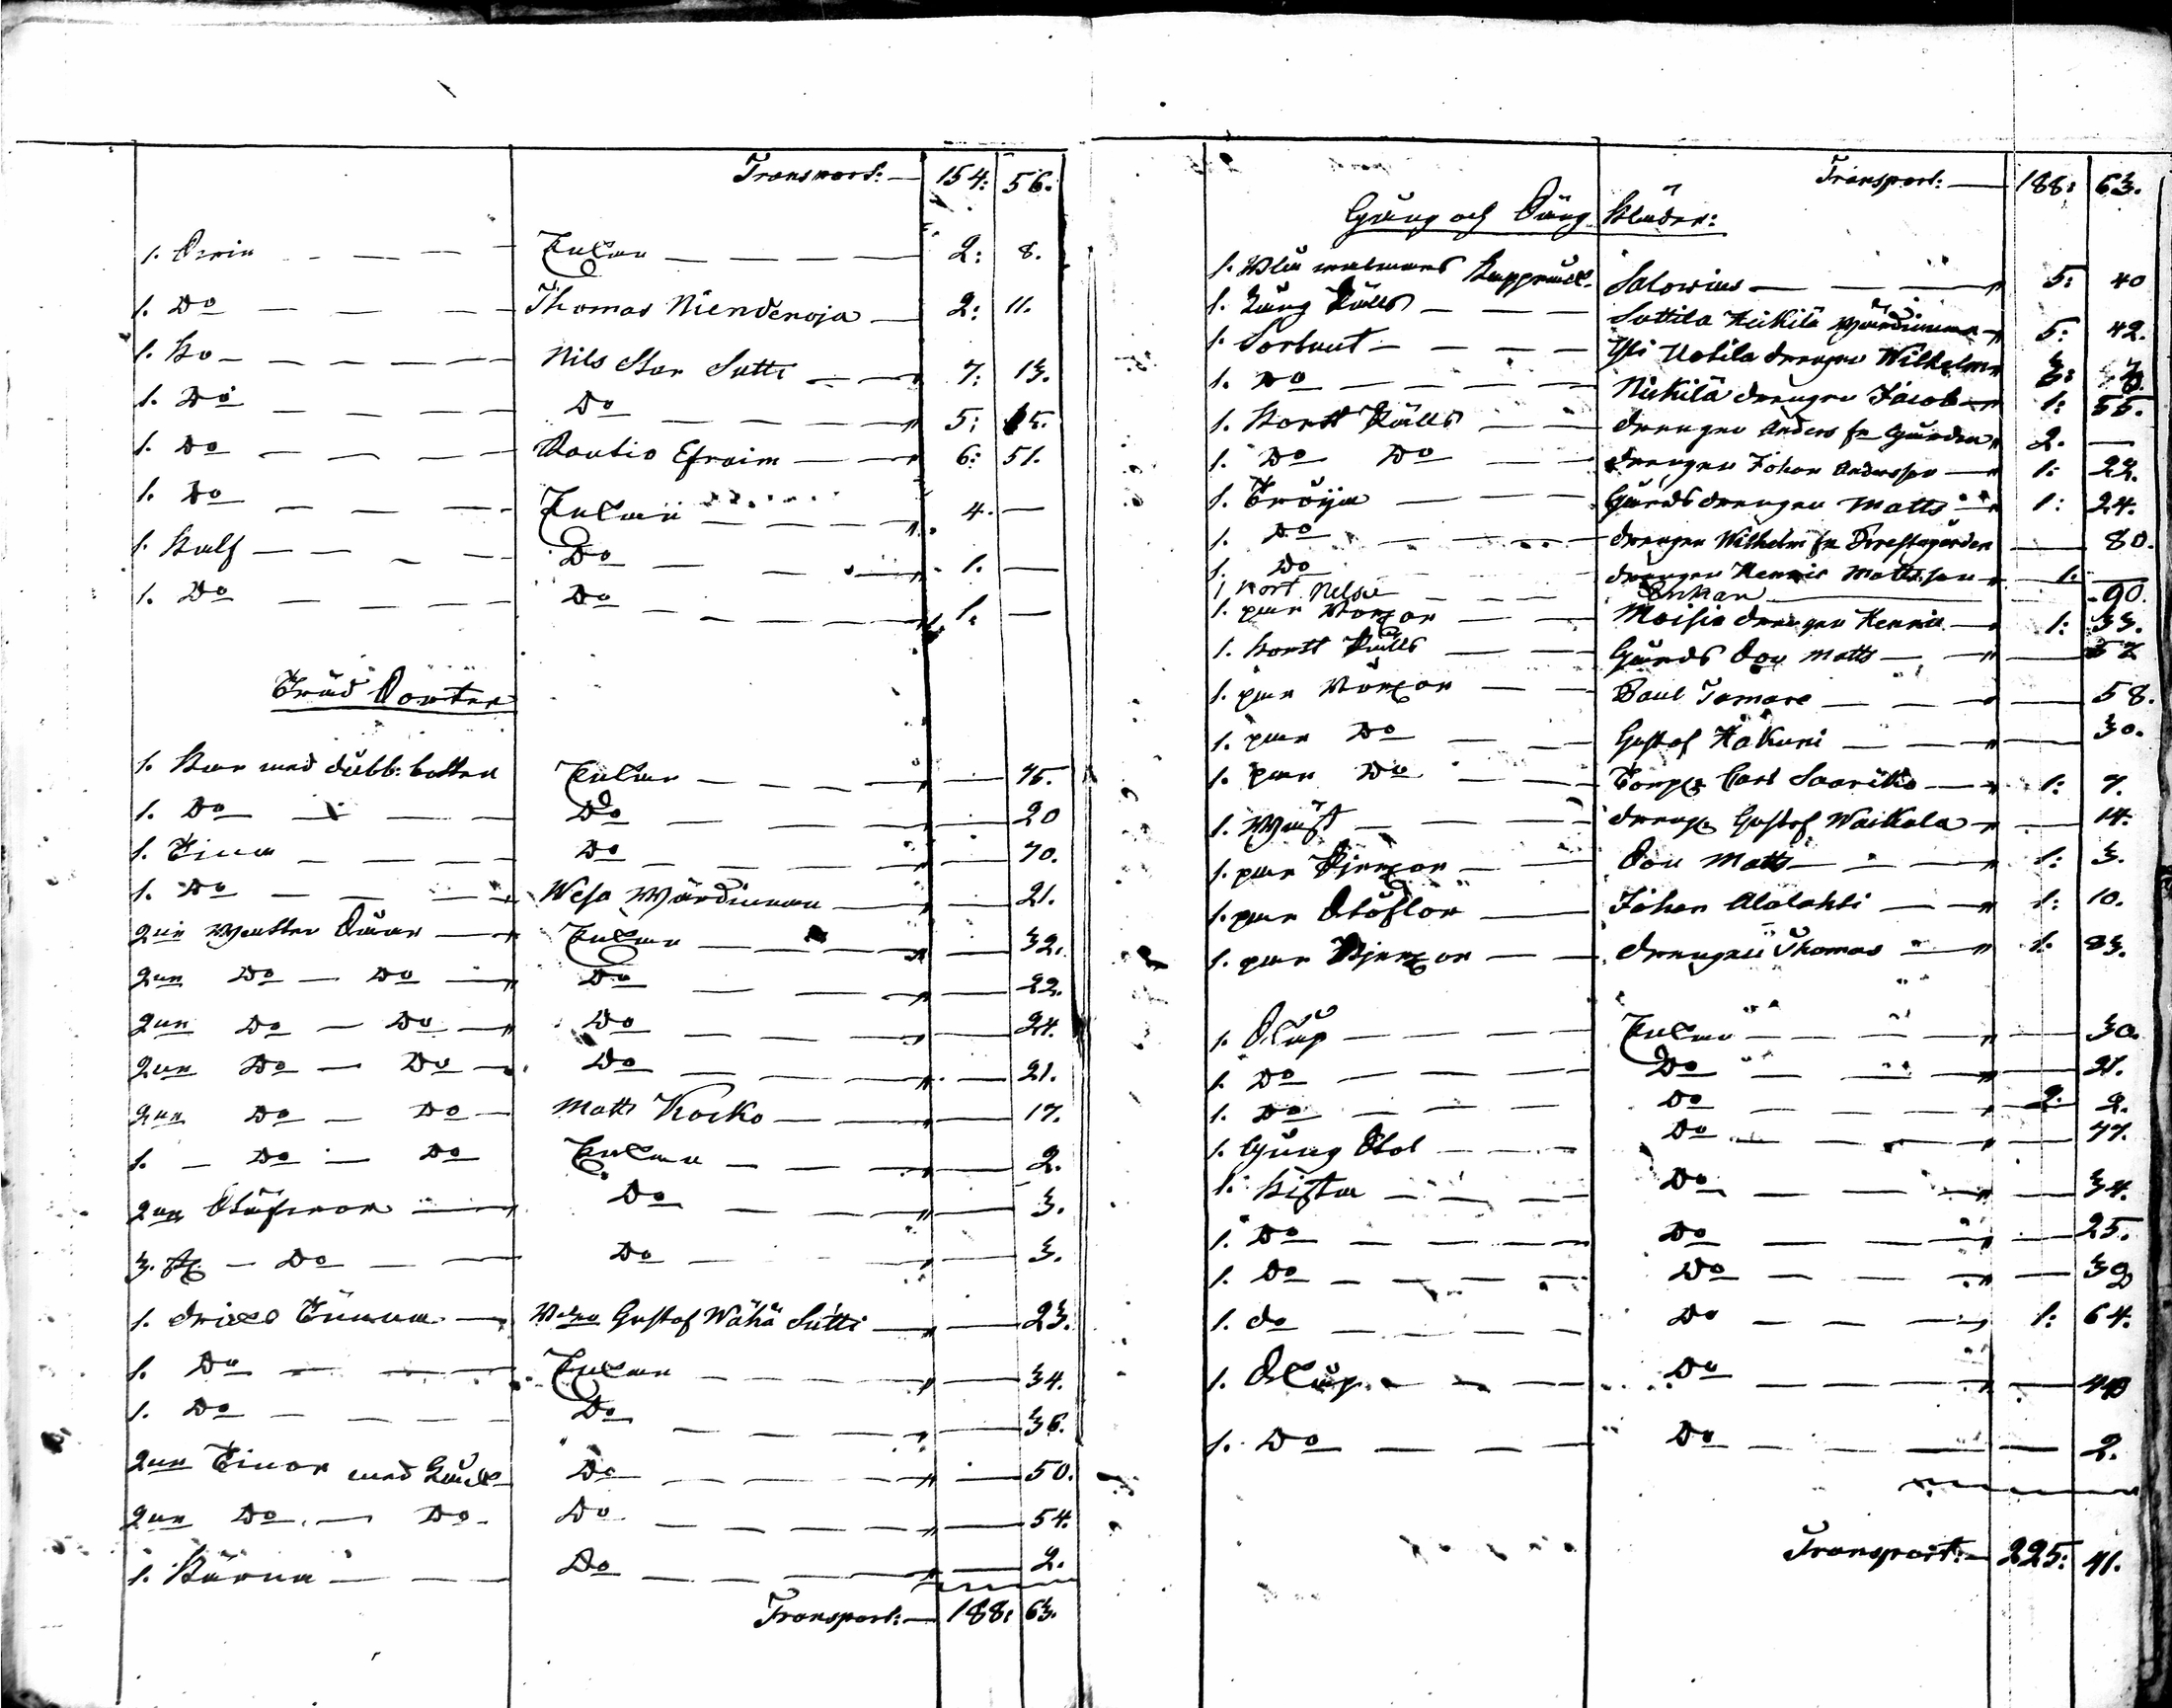 Transport: — 154: 56.
1. Qvin — Enkan — 2: 8.
1. Do — Thomas Niendenoja — 2: 11.
1. Ko — Nils Stor Sutti — 7: 13.
1. Do — Do — 5: 15.
1. Do — Rautio Efraim — 6: 51.
1. Do — Enkan — 4. —
1. Kalf — Do — 1. —
1. Do — Do — 1. —
Träd
1. Kar med dubb: botten Enkan — 75.
1. Do — Do — 20
1. Tina — Do — 70.
1. Do — Wesa Wärdinnan — 21.
2ne Watten Såar — Enkan — 32.
2ne Do — Do — Do — 22.
2ne Do — Do — Do — 24.
2ne Do — Do — Do — 21.
2ne Do — Do — Matts Kocko — 17.
1. — Do — Do Enkan — 2.
2ne Stäfwor — Do — 3.
3. st. — Do — Do — 3.
1. dricks Tunna — Gustaf Wähä Sutti — 23.
1. Do — Enkan — 34.
1. Do — Do — 36.
2ne Tinor med Låck Do — 50.
2ne Do — Do — Do — 54.
1. Kärna — Do — 2.
Transport: — 188: 63.
Transport: — 188: 63.
Gång och Säng Kläder:
1. Blå walmars Kapprock Salovius — 5: 40
1. Lång Pälts — Sattila Heikilä Wärdinna — 5: 42.
1. Sortuut — Yli Uotila drengen Wilhelm
1. Do — Nickilä drengen Jacob — 1: 55.
1. Kort Pälts — drengen Anders fr Gården 2. —
1. Do Do — drengen Johan Andersson — 1: 22.
1. Tröija — Gårds drengen Matts — 1: 24.
1. Do — drengen Wilhelm fr Prestagården — 80.
1. Do — drengen Henric Mattsson — 1. —
1. Kort — Enkan — 90.
1. par Boxor — Moisio drengen Henric — 1: 33.
1. Kort Pälts — Gårds Son Matts — 52
1. par Boxor — Paul Tamare — 58.
1. par Do — Gustaf Häkuri — 30.
1. par Do — Torp: Carl Saaritto — 1: 7.
1. Wäst — dreng: Gustaf Waikala — 14.
1. par — Son Matts — 1: 3.
1. par Stöflor — Johan Alalahti — 1: 10.
1. par — drengen Thomas — 1. 23.
1. Skåp — Enkan — 30.
1. Do — Do — 21.
1. Do — Do — 2. 2.
1. Gung Stol — Do — 77.
1. Kista — Do — 34.
1. Do — Do — 25.
1. Do — Do — 32
1. do — Do — 1: 64.
1. Skåp — Do — 40
1. Do — Do — 2.
Transport: — 225: 41.